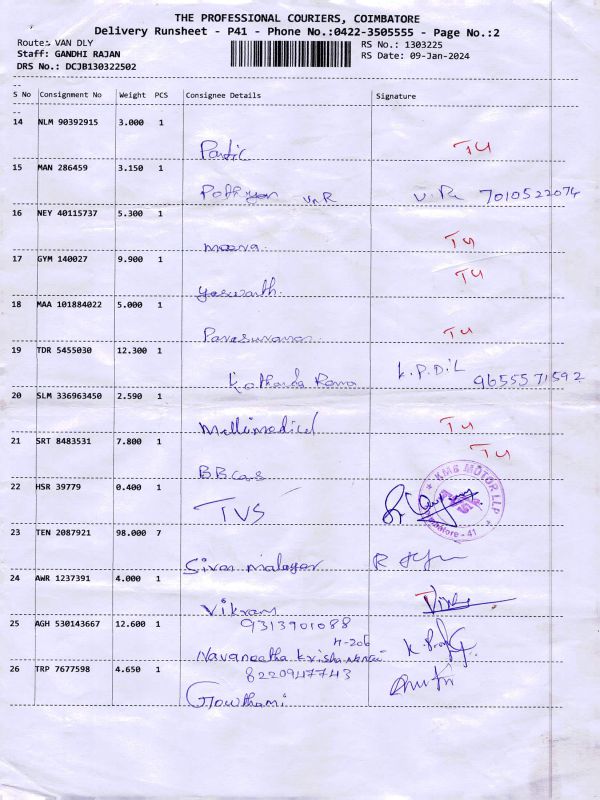 THE PROFESSIONAL COURIERS, COIMBATORE
Delivery Runsheet - P41 - Phone No.:0422-3505555 - Page No.:2
Route: VAN DLY
Staff: GANDHI RAJAN
DRS No.: DCJB130322502
RS No.: 1303225
RS Date: 09-Jan-2024
S No Consignment No Weight PCS Consignee Details Signature
14 NLM 90392915 3.000 1
TU
15 MAN 286459 3.150 1
VnR V.R 7010522074
16 NEY 40115737 5.300 1
meena TU
17 GYM 140027 9.900 1
yaswanth. TU
18 MAA 101884022 5.000 1
TU
19 TDR 5455030 12.300 1
Kothanda Rama L.P.D.L 9655571592
20 SLM 336963450 2.590 1
TU
21 SRT 8483531 7.800 1
TU
22 HSR 39779 0.400 1
TVS KMB MOTOR LLP
23 TEN 2087921 98.000 7
24 AWR 1237391 4.000 1
Vikram
25 AGH 530143667 12.600 1
9313901088
H-206
Navaneetha
26 TRP 7677598 4.650 1
8220947743
Gowthami